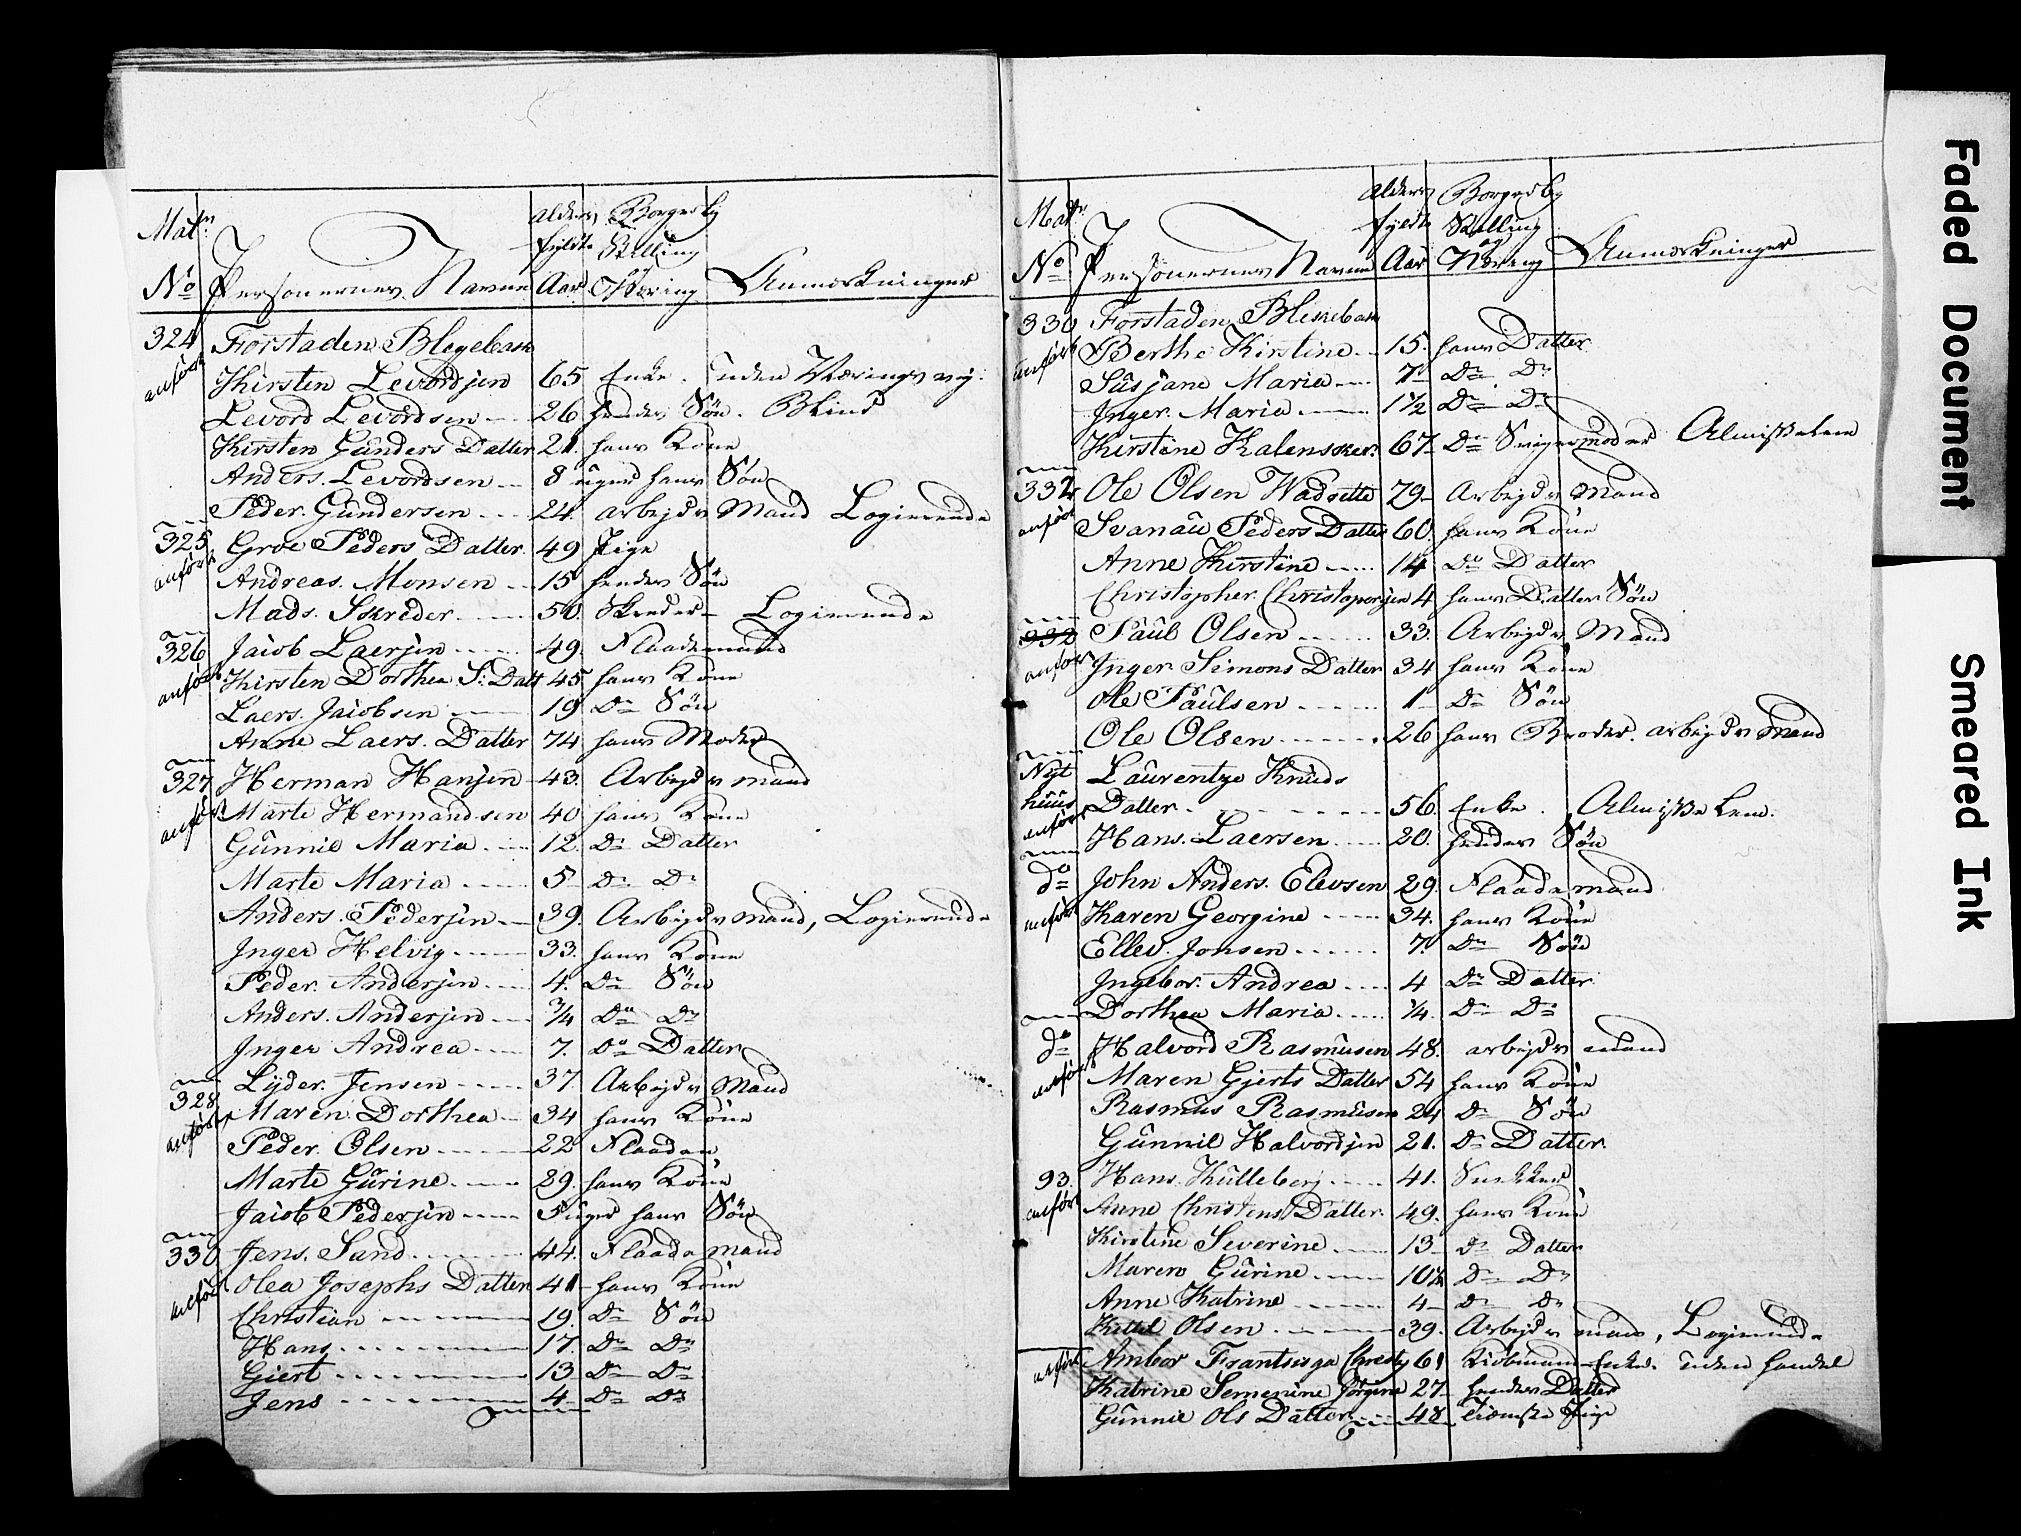 Matr. No Personernes Navne Alders fyldte Aar Borgerlig Stilling og Næring Anmærkninger
324 Forstaden Blegebak
anført Kirsten Levordsen 65 Enke. uden Nærings vej.
Levord Levordsen 26 hendes Søn. Blind
Kirsten Gunders Datter 21. hans Kone
Anders. Levordsen 8 uger hans Søn
Peder. Gundersen 24. arbejds Mand Logierende
325 Groe Peders Datter. 49 Pige
anført Andreas. Monsen 15 hendes Søn
Mads. Skreder 50. Skreder Logierende
326 Jacob Laersen 49. Flaademand
anført Kirsten Dorthea S: Datt 45. hans Kone
Laers. Jacobsen 19 Do Søn
Anne Laers. Datter 74 hans Moder
327 Herman Hansen 43. Arbejds mand
anført Marte Hermandsen 40 hans Kone
Gunnil Maria 12. Do Datter
Marte Maria 5 Do Do
Anders. Pedersen 39. Arbejds mand, Logierende
Inger Helvig 33. hans Kone
Peder. Andersen 4. Do Søn
Anders. Andersen 3/4 Do Do
Inger Andrea 7. Do Datter
328 Lyder. Jensen 37. Arbejds Mand
anført Maren Dorthea 34 hans Kone
Peder. Olsen 22 Flaaden
Marte Gurine 29. hans Kone
Jacob Pedersen 5 uger hans Søn
330 Jens. Sand 44. Flaade mand
anført Olea Josephs Datter 41 hans Kone
Christian 19. Do Søn
Hans 17. Do Do
Giert 13 Do Do
Jens 4 Do Do
Matr. No Personernes Navne Alders fyldte Aar Borgerlig Stilling og Næring Anmærkninger
330 Forstaden Blekebak
anført Berthe Kirstine 15. hans Datter
Susjane Maria 7 Do Do
Inger. Maria 1 1/2 Do Do
Kirstine Kalensker. 67 Do Svigermoder Almisselem
Ole Olsen Wadsette 79 Arbejds Mand
anført Svanau Peders Datter 60. hans Kone
Anne Kirstine 14 Do Datter
Christopher. Christopersen 4 hans Datter Søn
332 Paul Olsen 33. Arbejds Mand
anført Inger Simons Datter 34 hans Kone
Ole Paulsen 1 Do Søn
Ole Olsen 26 hans Broder. arbejds Mand
Nyt Laurentze Knuds
huus Datter 56. Enke. Almisse Lem.
anført Hans. Laersen 20. hendes Søn
do John Anders. Elevsen 29. Flaade mand
anført Karen Georgine 34. hans Kone
Ellev. Jonsen 7. Do Søn
Ingebor. Andrea 4 Do Datter
Dorthea Maria 1/4. Do Do
do Halvord Rasmusen 48. arbejds mand
anført Maren Gjerts Datter 54 hans Kone
Rasmus Rasmusen 24 Do Søn
Gunnil Halvordsen 21. Do Datter
93. Hans. Kulleberj 41. Snekker
anført Anne Christens Datter. 49. hans Kone
Kirstine Severine 13 Do Datter
Maren Gurine 10 1/2 Do Do
Anne Katrine 4 Do Do
Kittel Olsen 39. Arbejds mand, Logierende
anført Ambor Frantsisga Christy 61 Kiobmand Enke. uden handel
Katrine Semenine Jörgine 27 hendes Datter
Gunnil Ols Datter 48 Tieneste Pige
Faded Document
Smeared Ink